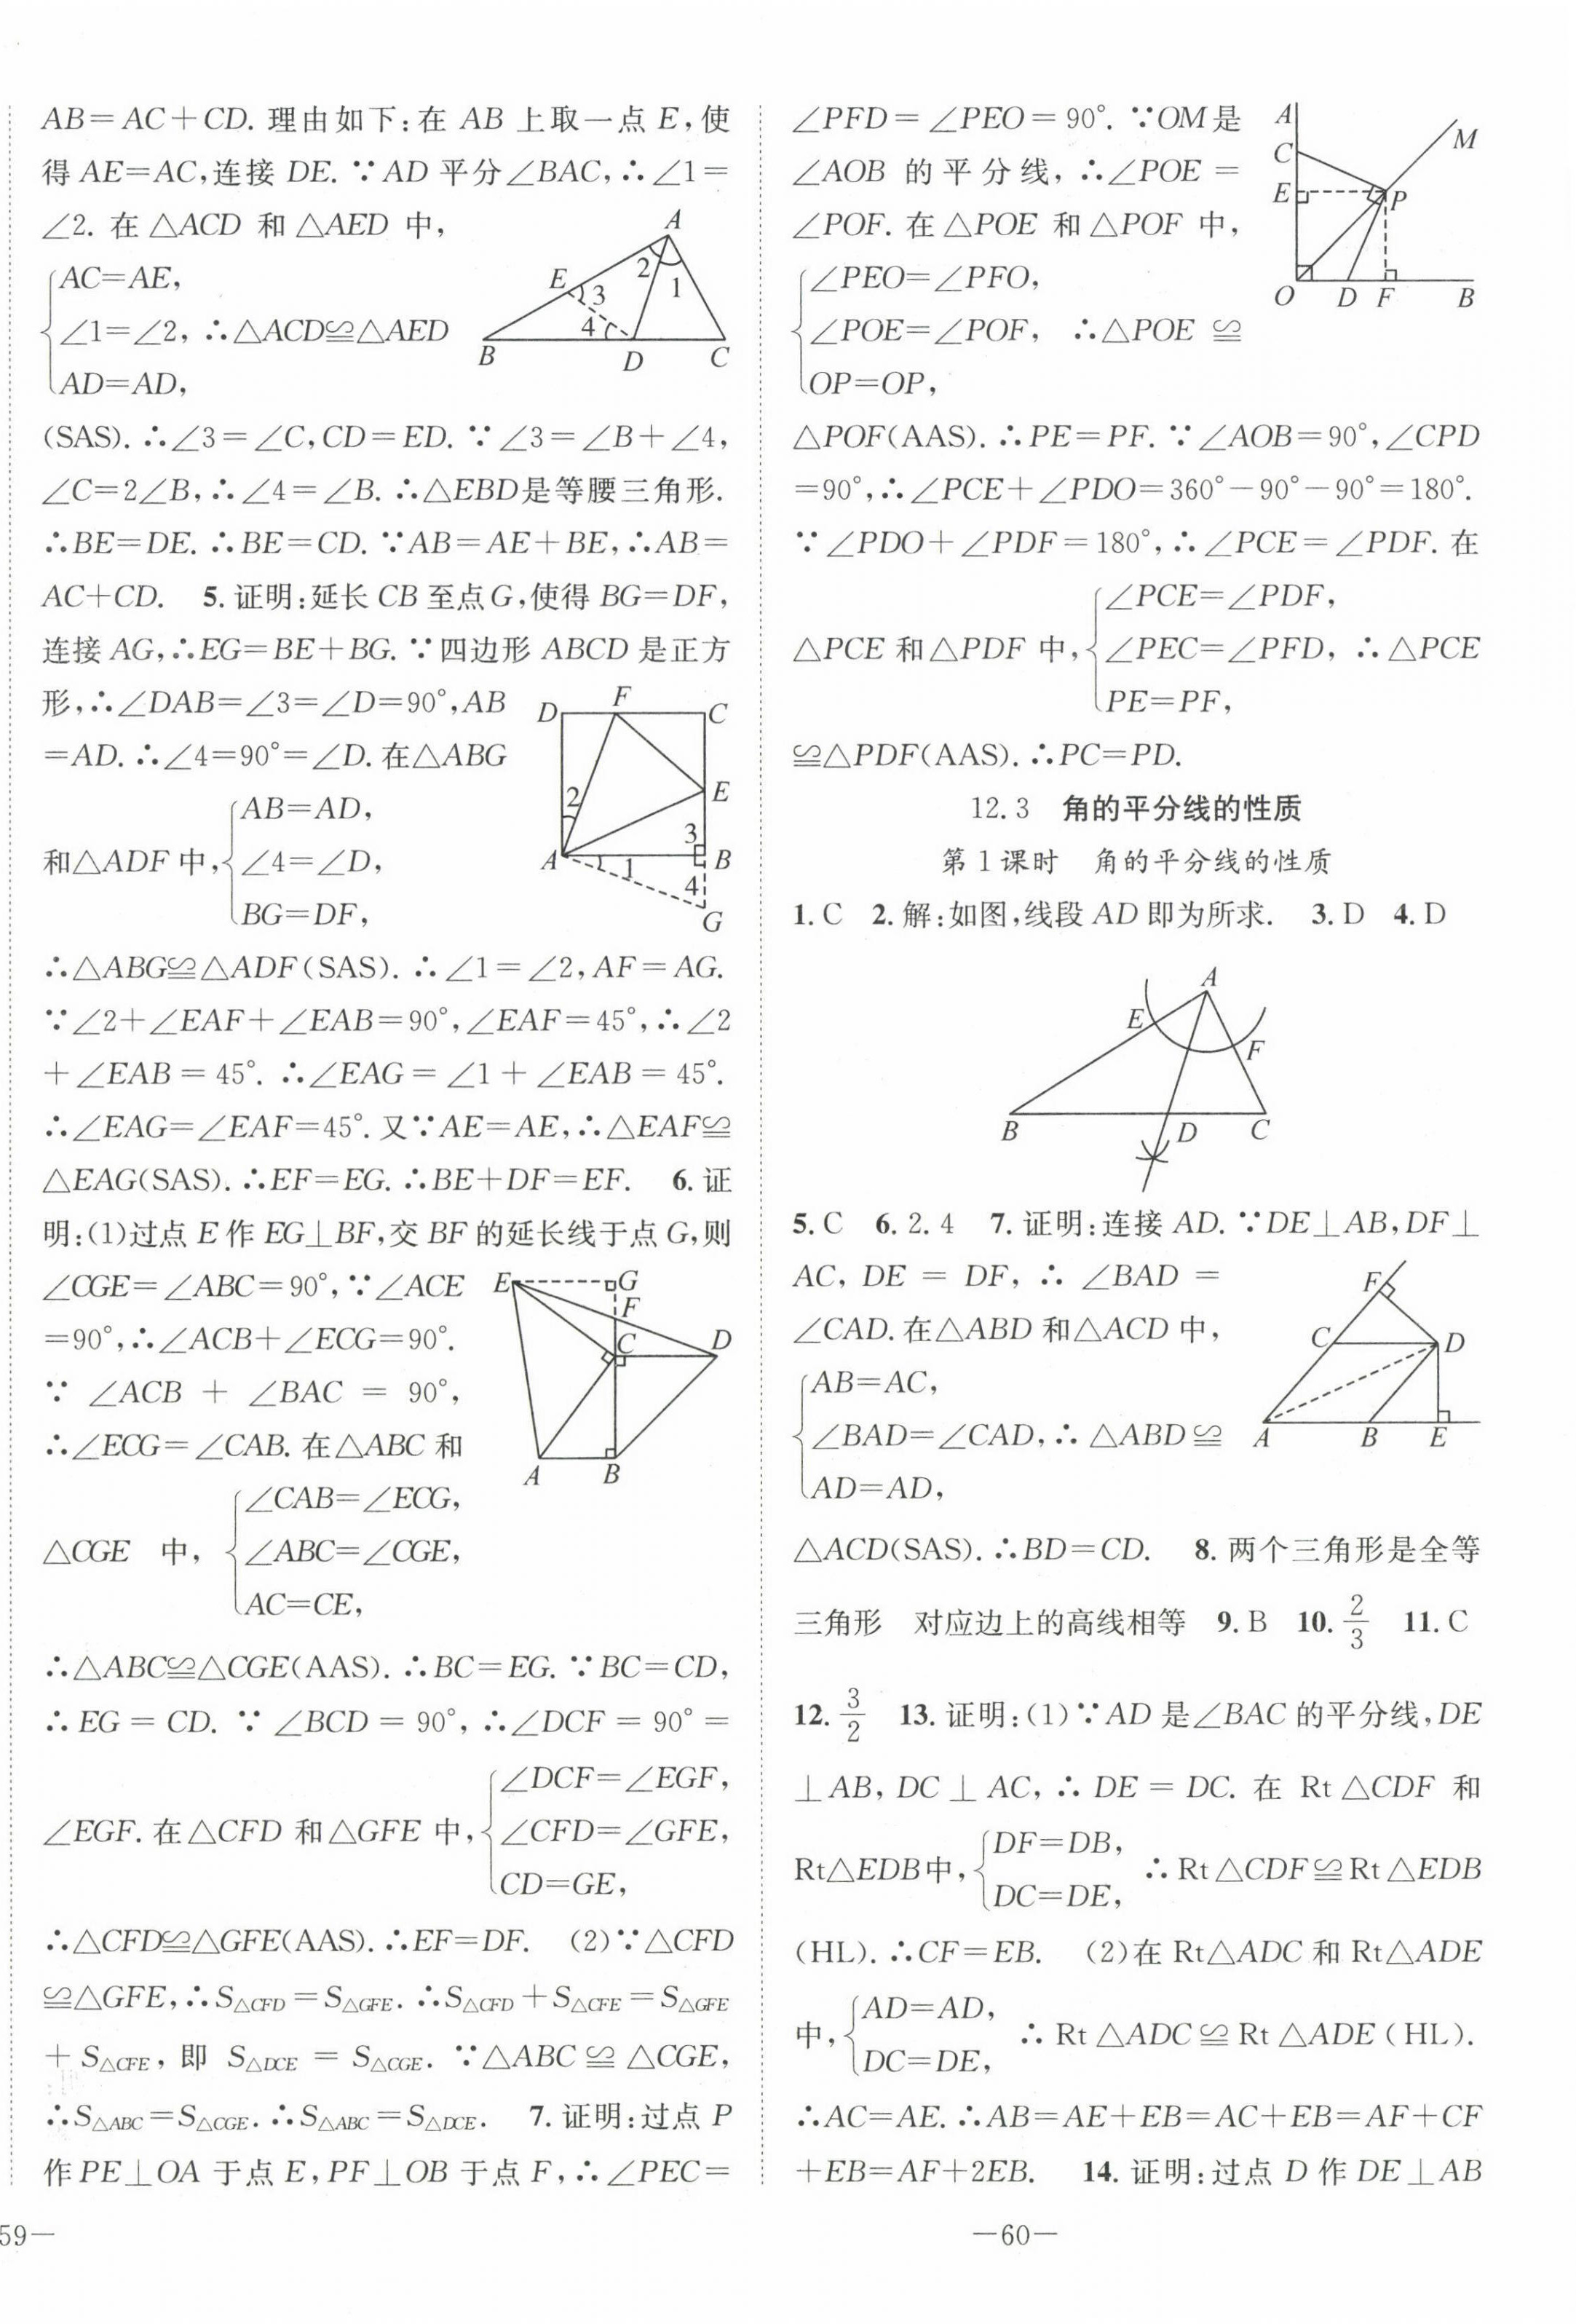 AB=AC+CD. 理由如下:在 AB 上取一点 E,使
得 AE=AC,连接 DE. ∵AD 平分∠BAC,∴∠1=
∠2. 在 △ACD 和 △AED 中,
AC=AE,
∠1=∠2, ∴△ACD≌△AED
AD=AD,
A
E
2
1
3
4
B
D
C
(SAS). ∴∠3=∠C,CD=ED. ∵∠3=∠B+∠4,
∠C=2∠B,∴∠4=∠B. ∴△EBD是等腰三角形.
∴BE=DE. ∴BE=CD. ∵AB=AE+BE,∴AB=
AC+CD. 5. 证明:延长 CB 至点G,使得 BG=DF,
连接 AG,∴EG=BE+BG. ∵四边形 ABCD 是正方
形,∴∠DAB=∠3=∠D=90°,AB
=AD. ∴∠4=90°=∠D. 在△ABG
AB=AD,
和△ADF 中, ∠4=∠D,
BG=DF,
D
F
C
2
E
3
A
1
B
4
G
∴△ABG≌△ADF(SAS). ∴∠1=∠2,AF=AG.
∵∠2+∠EAF+∠EAB=90°,∠EAF=45°,∴∠2
+∠EAB=45°. ∴∠EAG=∠1+∠EAB=45°.
∴∠EAG=∠EAF=45°. 又∵AE=AE,∴△EAF≌
△EAG(SAS). ∴EF=EG. ∴BE+DF=EF. 6. 证
明:(1)过点 E 作 EG⊥BF,交 BF 的延长线于点 G,则
∠CGE=∠ABC=90°,∵∠ACE
=90°,∴∠ACB+∠ECG=90°.
∵ ∠ACB + ∠BAC = 90°,
∴∠ECG=∠CAB. 在△ABC 和
∠CAB=∠ECG,
△CGE 中, ∠ABC=∠CGE,
AC=CE,
E
G
F
C
D
A
B
∴△ABC≌△CGE(AAS). ∴BC=EG. ∵BC=CD,
∴EG=CD. ∵∠BCD=90°,∴∠DCF=90°=
∠DCF=∠EGF,
∠EGF. 在△CFD 和△GFE 中, ∠CFD=∠GFE,
CD=GE,
∴△CFD≌△GFE(AAS). ∴EF=DF. (2)∵△CFD
≌△GFE,∴S△CFD=S△GFE. ∴S△CFD+S△CFE=S△GFE
+S△CFE, 即 S△DCE=S△CGE. ∵△ABC≌△CGE,
∴S△ABC=S△CGE. ∴S△ABC=S△DCE. 7. 证明:过点 P
作 PE⊥OA 于点 E,PF⊥OB 于点 F,∴∠PEC=
59—
∠PFD=∠PEO=90°. ∵OM是
∠AOB 的平分线,∴∠POE=
∠POF. 在△POE 和△POF 中,
∠PEO=∠PFO,
∠POE=∠POF, ∴△POE ≌
OP=OP,
A
M
C
E
P
O
D
F
B
△POF(AAS). ∴PE=PF. ∵∠AOB=90°,∠CPD
=90°,∴∠PCE+∠PDO=360°-90°-90°=180°.
∵∠PDO+∠PDF=180°,∴∠PCE=∠PDF. 在
∠PCE=∠PDF,
△PCE 和△PDF 中, ∠PEC=∠PFD, ∴△PCE
PE=PF,
≌△PDF(AAS). ∴PC=PD.
12.3 角的平分线的性质
第 1 课时 角的平分线的性质
1. C 2. 解:如图,线段 AD 即为所求. 3. D 4. D
A
E
F
B
D
C
5. C 6. 2.4 7. 证明:连接 AD. ∵DE⊥AB,DF⊥
AC, DE = DF, ∴ ∠BAD =
∠CAD. 在△ABD 和△ACD 中,
AB=AC,
∠BAD=∠CAD,∴△ABD≌
AD=AD,
F
C
D
A
B
E
△ACD(SAS). ∴BD=CD. 8. 两个三角形是全等
三角形 对应边上的高线相等 9. B 10. 2/3 11. C
12. 3/2 13. 证明:(1)∵AD 是∠BAC 的平分线,DE
⊥AB, DC⊥AC, ∴DE=DC. 在 Rt△CDF 和
Rt△EDB中, DF=DB, ∴Rt△CDF≌Rt△EDB
DC=DE,
(HL). ∴CF=EB. (2)在 Rt△ADC 和 Rt△ADE
中, AD=AD, ∴Rt△ADC≌Rt△ADE(HL).
DC=DE,
∴AC=AE. ∴AB=AE+EB=AC+EB=AF+CF
+EB=AF+2EB. 14. 证明:过点 D 作 DE⊥AB
—60—